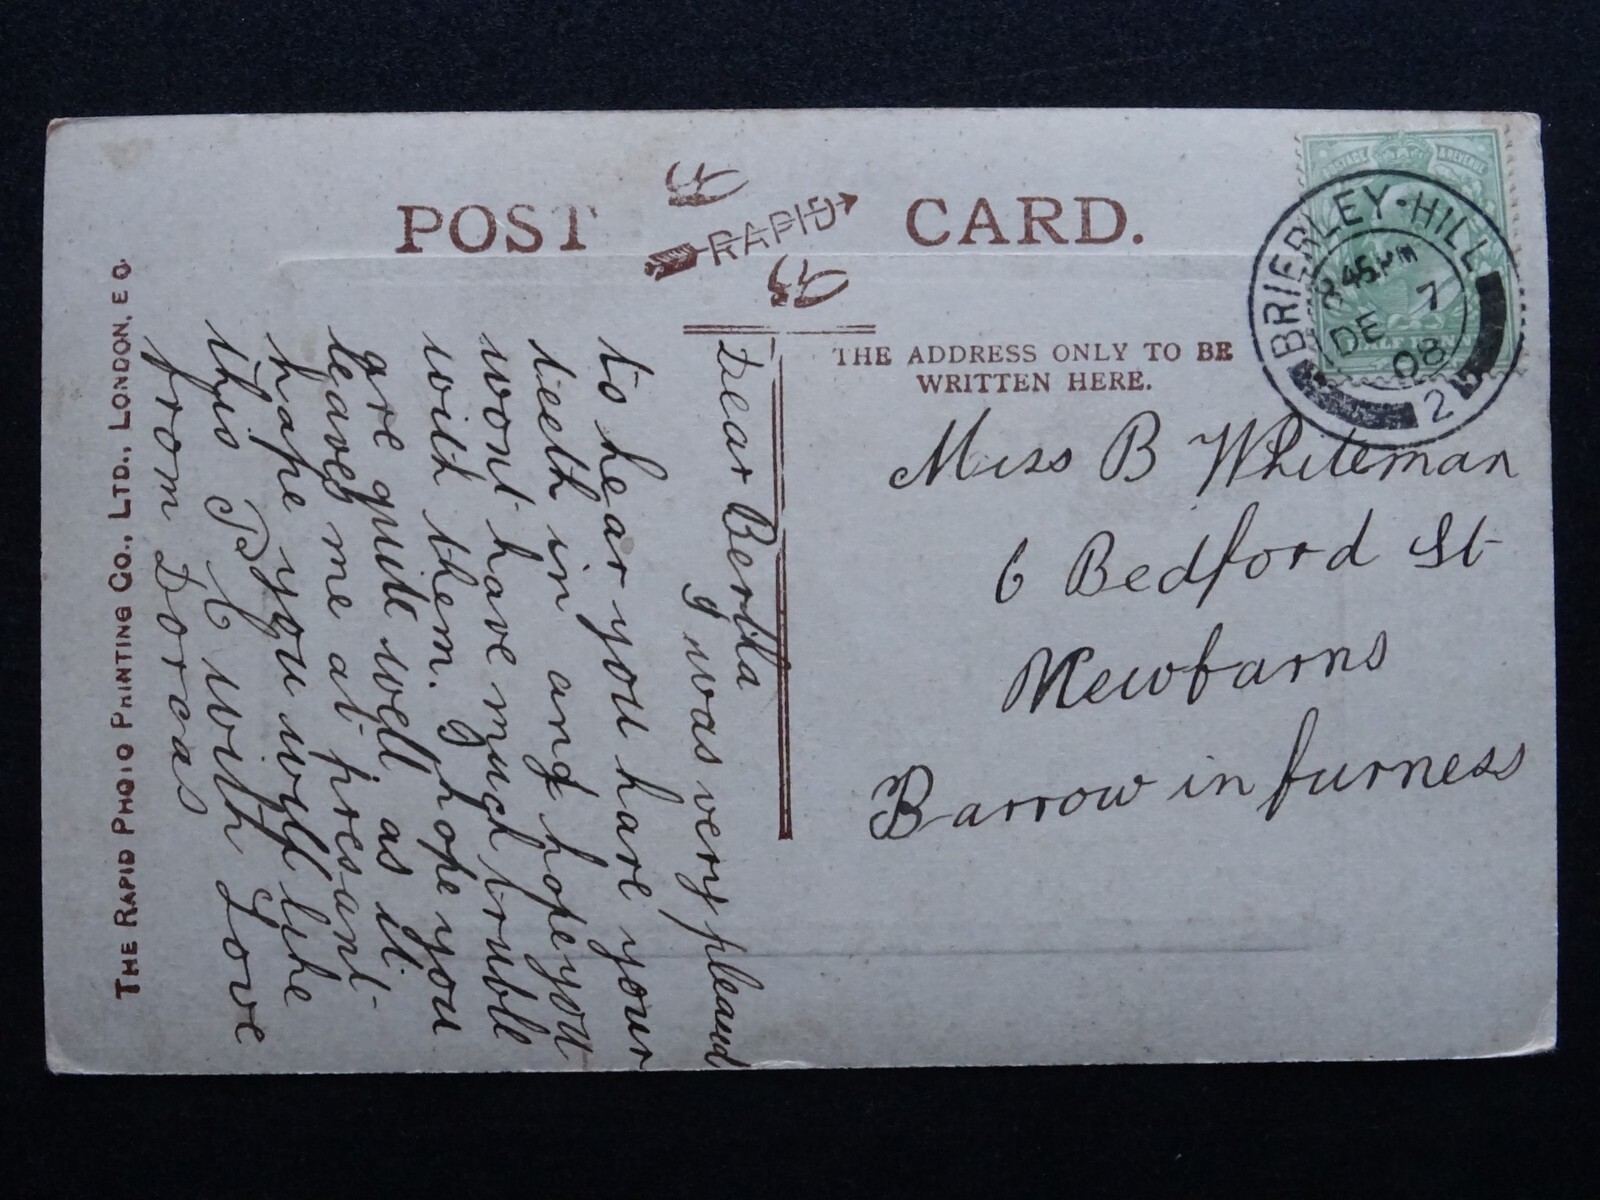 POST CARD.
RAPID
THE ADDRESS ONLY TO BE
WRITTEN HERE.
POSTAGE & REVENUE
HALF PENNY
BRIERLEY-HILL
8 45 PM
DE 7
08
2
Miss B Whiteman
6 Bedford St
Newbarns
Barrow in furness
Dear Bertha
I was very pleasud
to hear you have your
teeth in and hope you
wont have much truble
with them. I hope you
are quite well as it
leaves me at presant
hape you will like
this P C with Love
from Dorcas
THE RAPID PHOTO PRINTING CO., LTD., LONDON, E C.